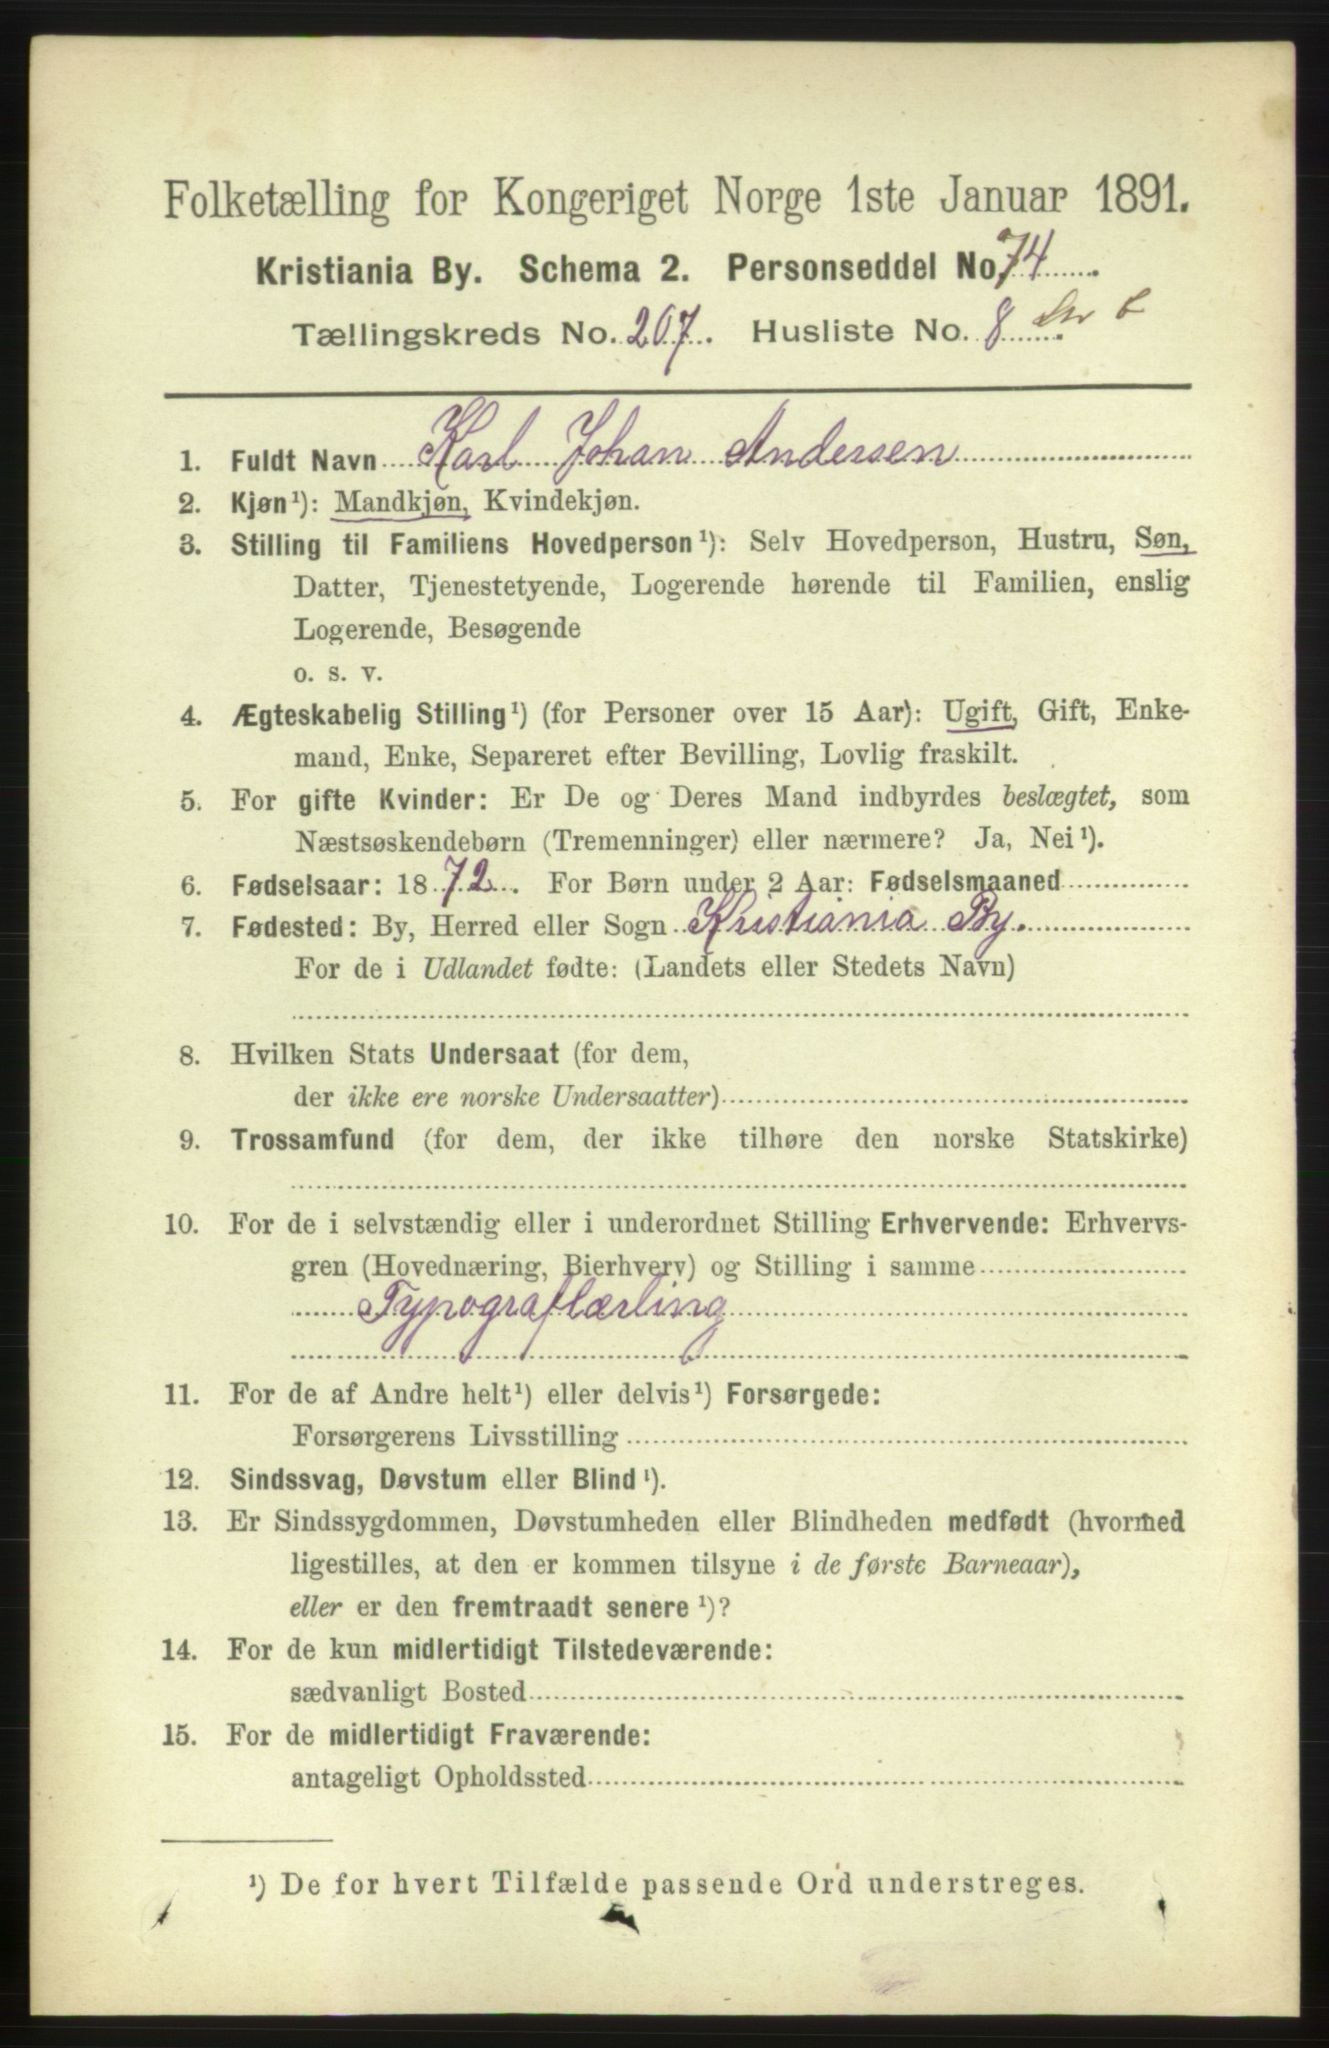 Folketælling for Kongeriget Norge 1ste Januar 1891.
Kristiania By. Schema 2. Personseddel No. 74
Tællingskreds No. 207. Husliste No. 8
1. Fuldt Navn Karl Johan Andersen
2. Kjøn¹): Mandkjøn, Kvindekjøn.
3. Stilling til Familiens Hovedperson¹): Selv Hovedperson, Hustru, Søn,
Datter, Tjenestetyende, Logerende hørende til Familien, enslig
Logerende, Besøgende
o. s. v.
4. Ægteskabelig Stilling¹) (for Personer over 15 Aar): Ugift, Gift, Enke-
mand, Enke, Separeret efter Bevilling, Lovlig fraskilt.
5. For gifte Kvinder: Er De og Deres Mand indbyrdes beslægtet, som
Næstsøskendebørn (Tremenninger) eller nærmere? Ja, Nei¹).
6. Fødselsaar: 1872. For Børn under 2 Aar: Fødselsmaaned
7. Fødested: By, Herred eller Sogn Kristiania By.
For de i Udlandet fødte: (Landets eller Stedets Navn)
8. Hvilken Stats Undersaat (for dem,
der ikke ere norske Undersaatter)
9. Trossamfund (for dem, der ikke tilhøre den norske Statskirke)
10. For de i selvstændig eller i underordnet Stilling Erhvervende: Erhvervs-
gren (Hovednæring, Bierhverv) og Stilling i samme
Typograflærling
11. For de af Andre helt¹) eller delvis¹) Forsørgede:
Forsørgerens Livsstilling
12. Sindssvag, Døvstum eller Blind¹).
13. Er Sindssygdommen, Døvstumheden eller Blindheden medfødt (hvormed
ligestilles, at den er kommen tilsyne i de første Barneaar),
eller er den fremtraadt senere¹)?
14. For de kun midlertidigt Tilstedeværende:
sædvanligt Bosted
15. For de midlertidigt Fraværende:
antageligt Opholdssted
¹) De for hvert Tilfælde passende Ord understreges.